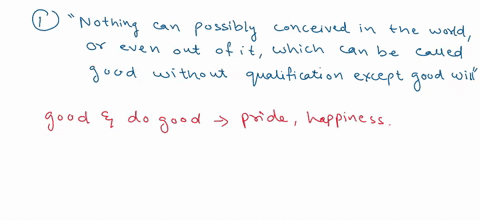 ① "Nothing can possibly conceived in the world,
or even out of it, which can be called
good without qualification except good will"
good & do good → pride, happiness.